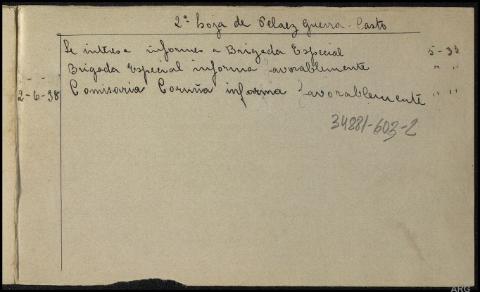 2ª hoja de Pelaez Guerra - Casto
Se interesa informes a Brigada Especial 5-38
Brigada Especial informa favorablemente " "
2-6-38 Comisaria Coruña informa favorablemente " "
34881-603-2
ARG